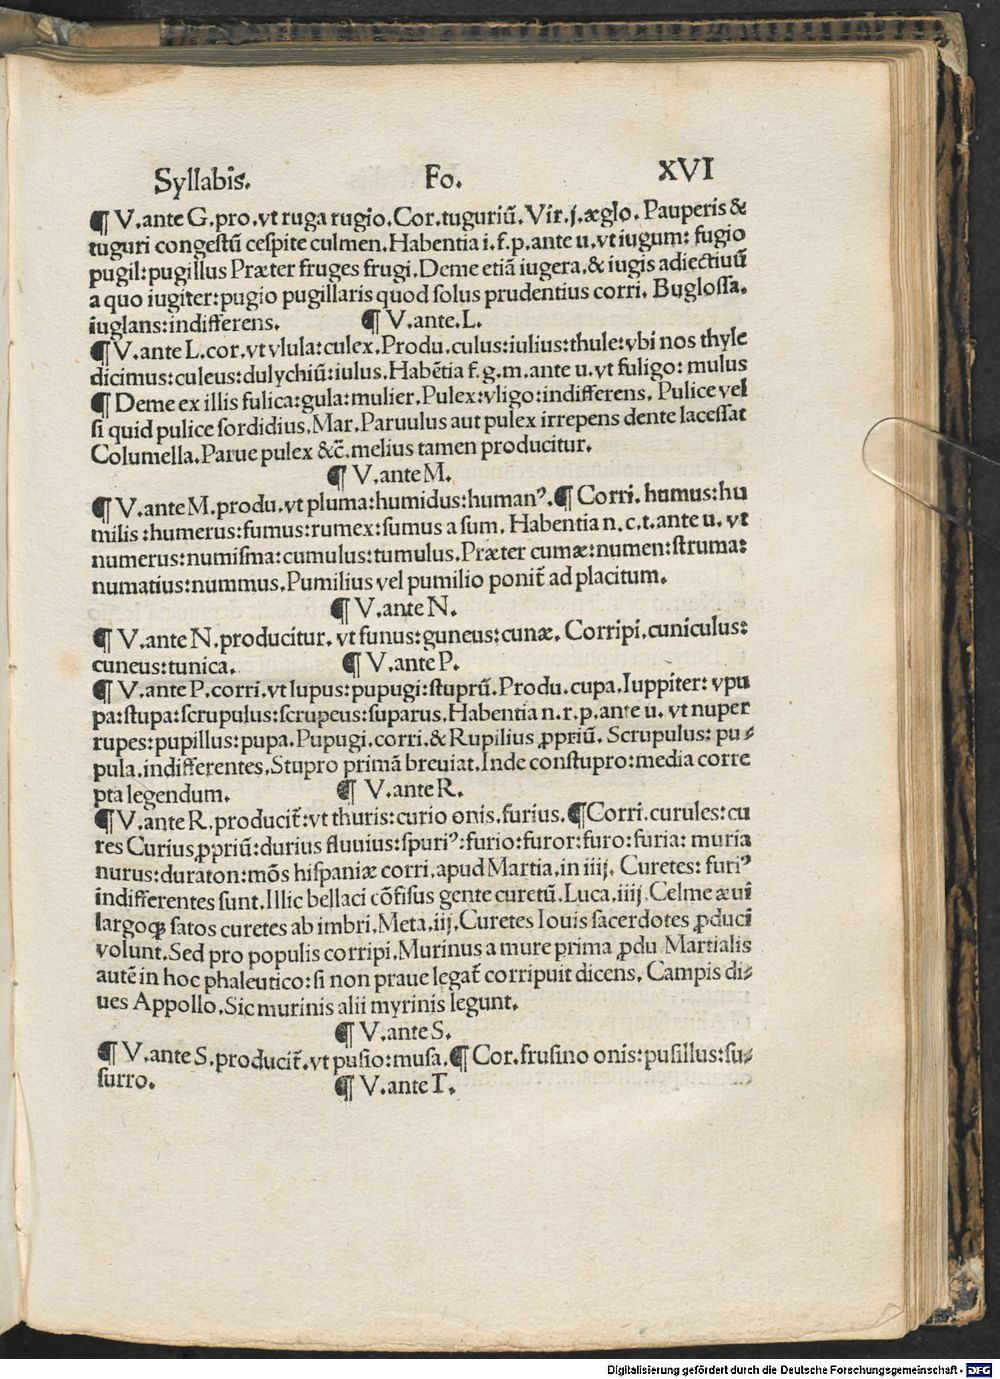 Syllabis. Fo. XVI
¶ V.ante G.pro.vt ruga rugio.Cor.tuguriũ.Vir.j.æglo. Pauperis &
tuguri congestũ cespite culmen.Habentia i.f.p.ante u.vt iugum: fugio
pugil:pugillus Præter fruges frugi.Deme etiã iugera.& iugis adiectiuũ
a quo iugiter:pugio pugillaris quod solus prudentius corri. Buglossa.
iuglans:indifferens. ¶ V.ante.L.
¶ V.ante L.cor.vt vlula:culex.Produ.culus:iulius:thule:vbi nos thyle
dicimus:culeus:dulychiũ:iulus.Habẽtia f.g.m.ante u.vt fuligo: mulus
¶ Deme ex illis fulica:gula:mulier.Pulex:vligo:indifferens. Pulice vel
si quid pulice sordidius.Mar.Paruulus aut pulex irrepens dente lacessat
Columella.Parue pulex &c̃.melius tamen producitur.
¶ V.ante M.
¶ V.ante M.produ.vt pluma:humidus:humanꝰ.¶ Corri. humus:hu
milis:humerus:fumus:rumex:sumus a sum. Habentia n.c.t.ante u. vt
numerus:numisma:cumulus:tumulus.Præter cumæ:numen:struma:
numatius:nummus.Pumilius vel pumilio ponit̃ ad placitum.
¶ V.ante N.
¶ V.ante N.producitur. vt funus:guneus:cunæ. Corripi.cuniculus:
cuneus:tunica. ¶ V.ante P.
¶ V.ante P.corri.vt lupus:pupugi:stuprũ.Produ.cupa.Iuppiter: vpu
pa:stupa:scrupulus:scrupeus:suparus.Habentia n.r.p.ante u. vt nuper
rupes:pupillus:pupa.Pupugi.corri.& Rupilius ꝓpriũ. Scrupulus: pu⸗
pula.indifferentes.Stupro primã breuiat.Inde constupro:media corre
pta legendum. ¶ V.ante R.
¶ V.ante R.producit̃:vt thuris:curio onis.furius.¶ Corri.curules:cu
res Curius ꝓpriũ:durius fluuius:spuriꝰ:furio:furor:furo:furia: muria
nurus:duraton:mõs hispaniæ corri.apud Martia.in iiij. Curetes: furiꝰ
indifferentes sunt.Illic bellaci cõfisus gente curetũ.Luca.iiij.Celme æui
largoqꝫ satos curetes ab imbri.Meta.iij.Curetes Iouis sacerdotes ꝓduci
volunt.Sed pro populis corripi.Murinus a mure prima ꝓdu Martialis
autẽ in hoc phaleutico:si non praue legat̃ corripuit dicens. Campis di⸗
ues Appollo.Sic murinis alii myrinis legunt.
¶ V.ante S.
¶ V.ante S.producit̃.vt pusio:musa.¶ Cor.frusino onis:pusillus:su⸗
surro. ¶ V.ante T.
Digitalisierung gefördert durch die Deutsche Forschungsgemeinschaft - DFG